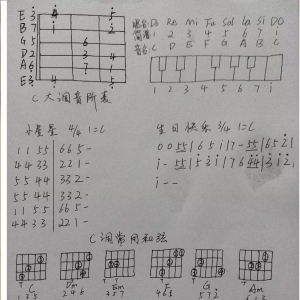 唱名: Do Re Mi Fa Sol La Si DO
简谱: 1 2 3 4 5 6 7 i
音名: C D E F G A B C
E 3 4 5
B 7 i 2
G 5 6
D 2 3 4
A 6 7 i
E 3 4 5
1 2 3 4 5 6 7 i
C大调音阶表
小星星 4/4 1=C
1 1 5 5 | 6 6 5 - |
4 4 3 3 | 2 2 1 - |
5 5 4 4 | 3 3 2 - |
5 5 4 4 | 3 3 2 - |
1 1 5 5 | 6 6 5 - |
4 4 3 3 | 2 2 1 - |
生日快乐 3/4 1=C
i - -
C调常用和弦
C Dm Em F G Am
2 4 6 3 5 7 4 6 5 5 7 2